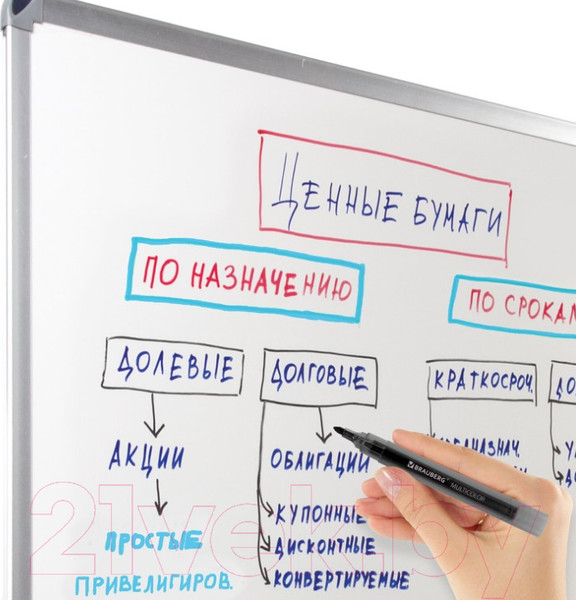 ЦЕННЫЕ БУМАГИ
ПО НАЗНАЧЕНИЮ
ПО СРОКАМ
ДОЛЕВЫЕ
ДОЛГОВЫЕ
КРАТКОСРОЧ.
АКЦИИ
ОБЛИГАЦИИ
ПРОСТЫЕ
ПРИВЕЛИГИРОВ.
КУПОННЫЕ
ДИСКОНТНЫЕ
КОНВЕРТИРУЕМЫЕ
BRAUBERG MULTICOLOR
21vek.by